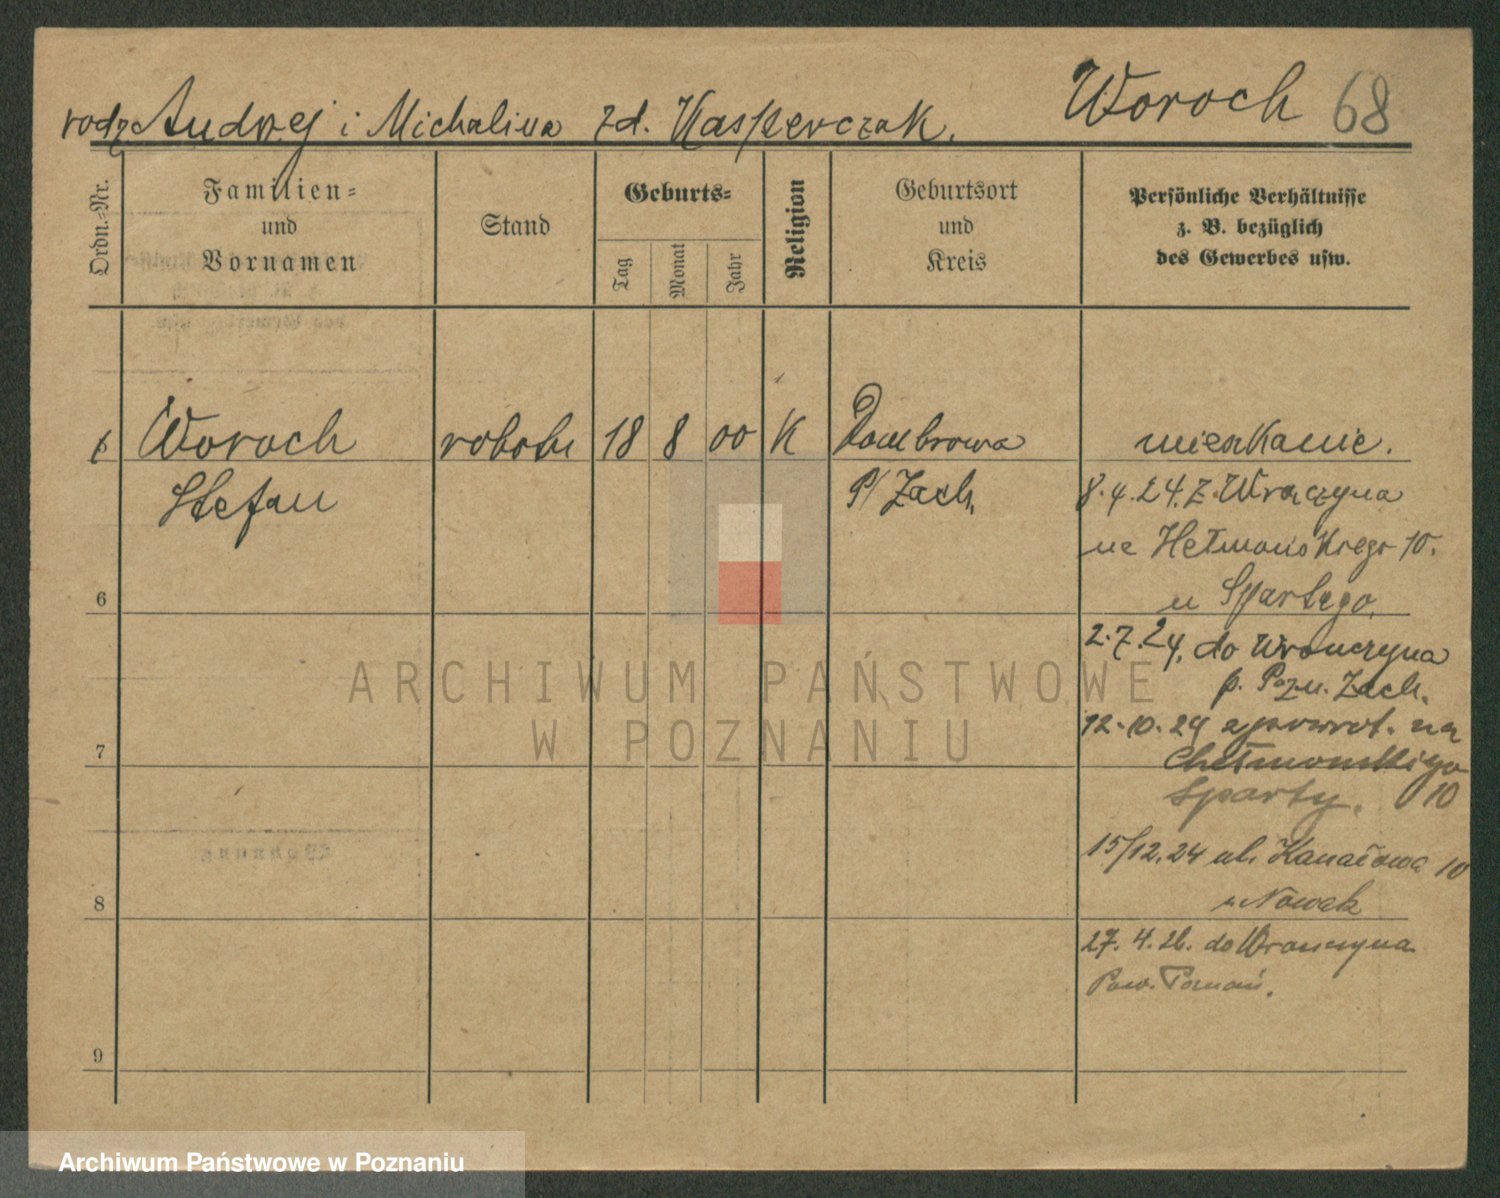 Woroch 68
rodz. Andrzej i Michalina zd. Kasperczak.
Ordn.=Nr.
Familien=
und
Vornamen
Stand
Geburts=
Tag
Monat
Jahr
Religion
Geburtsort
und
Kreis
Persönliche Verhältnisse
z. B. bezüglich
des Gewerbes usw.
Woroch robotn 18 8 00 K Dombrowa mieszkanie.
Stefan P/Zach. 8.4.24. z Wrączyna
na Hetmańskiego 10.
u Spartego.
6
2.7.24. do Wronczyna
p. Pozn. Zach.
12.10.24 zpowrot. na
7
Chełmonskigo
Sparty. 10
15/12.24 ul. Kanałowa 10
u Nowak
8
27.4.26. do Wronczyna
Pow. Poznań.
9
ARCHIWUM PAŃSTWOWE
W POZNANIU
Archiwum Państwowe w Poznaniu